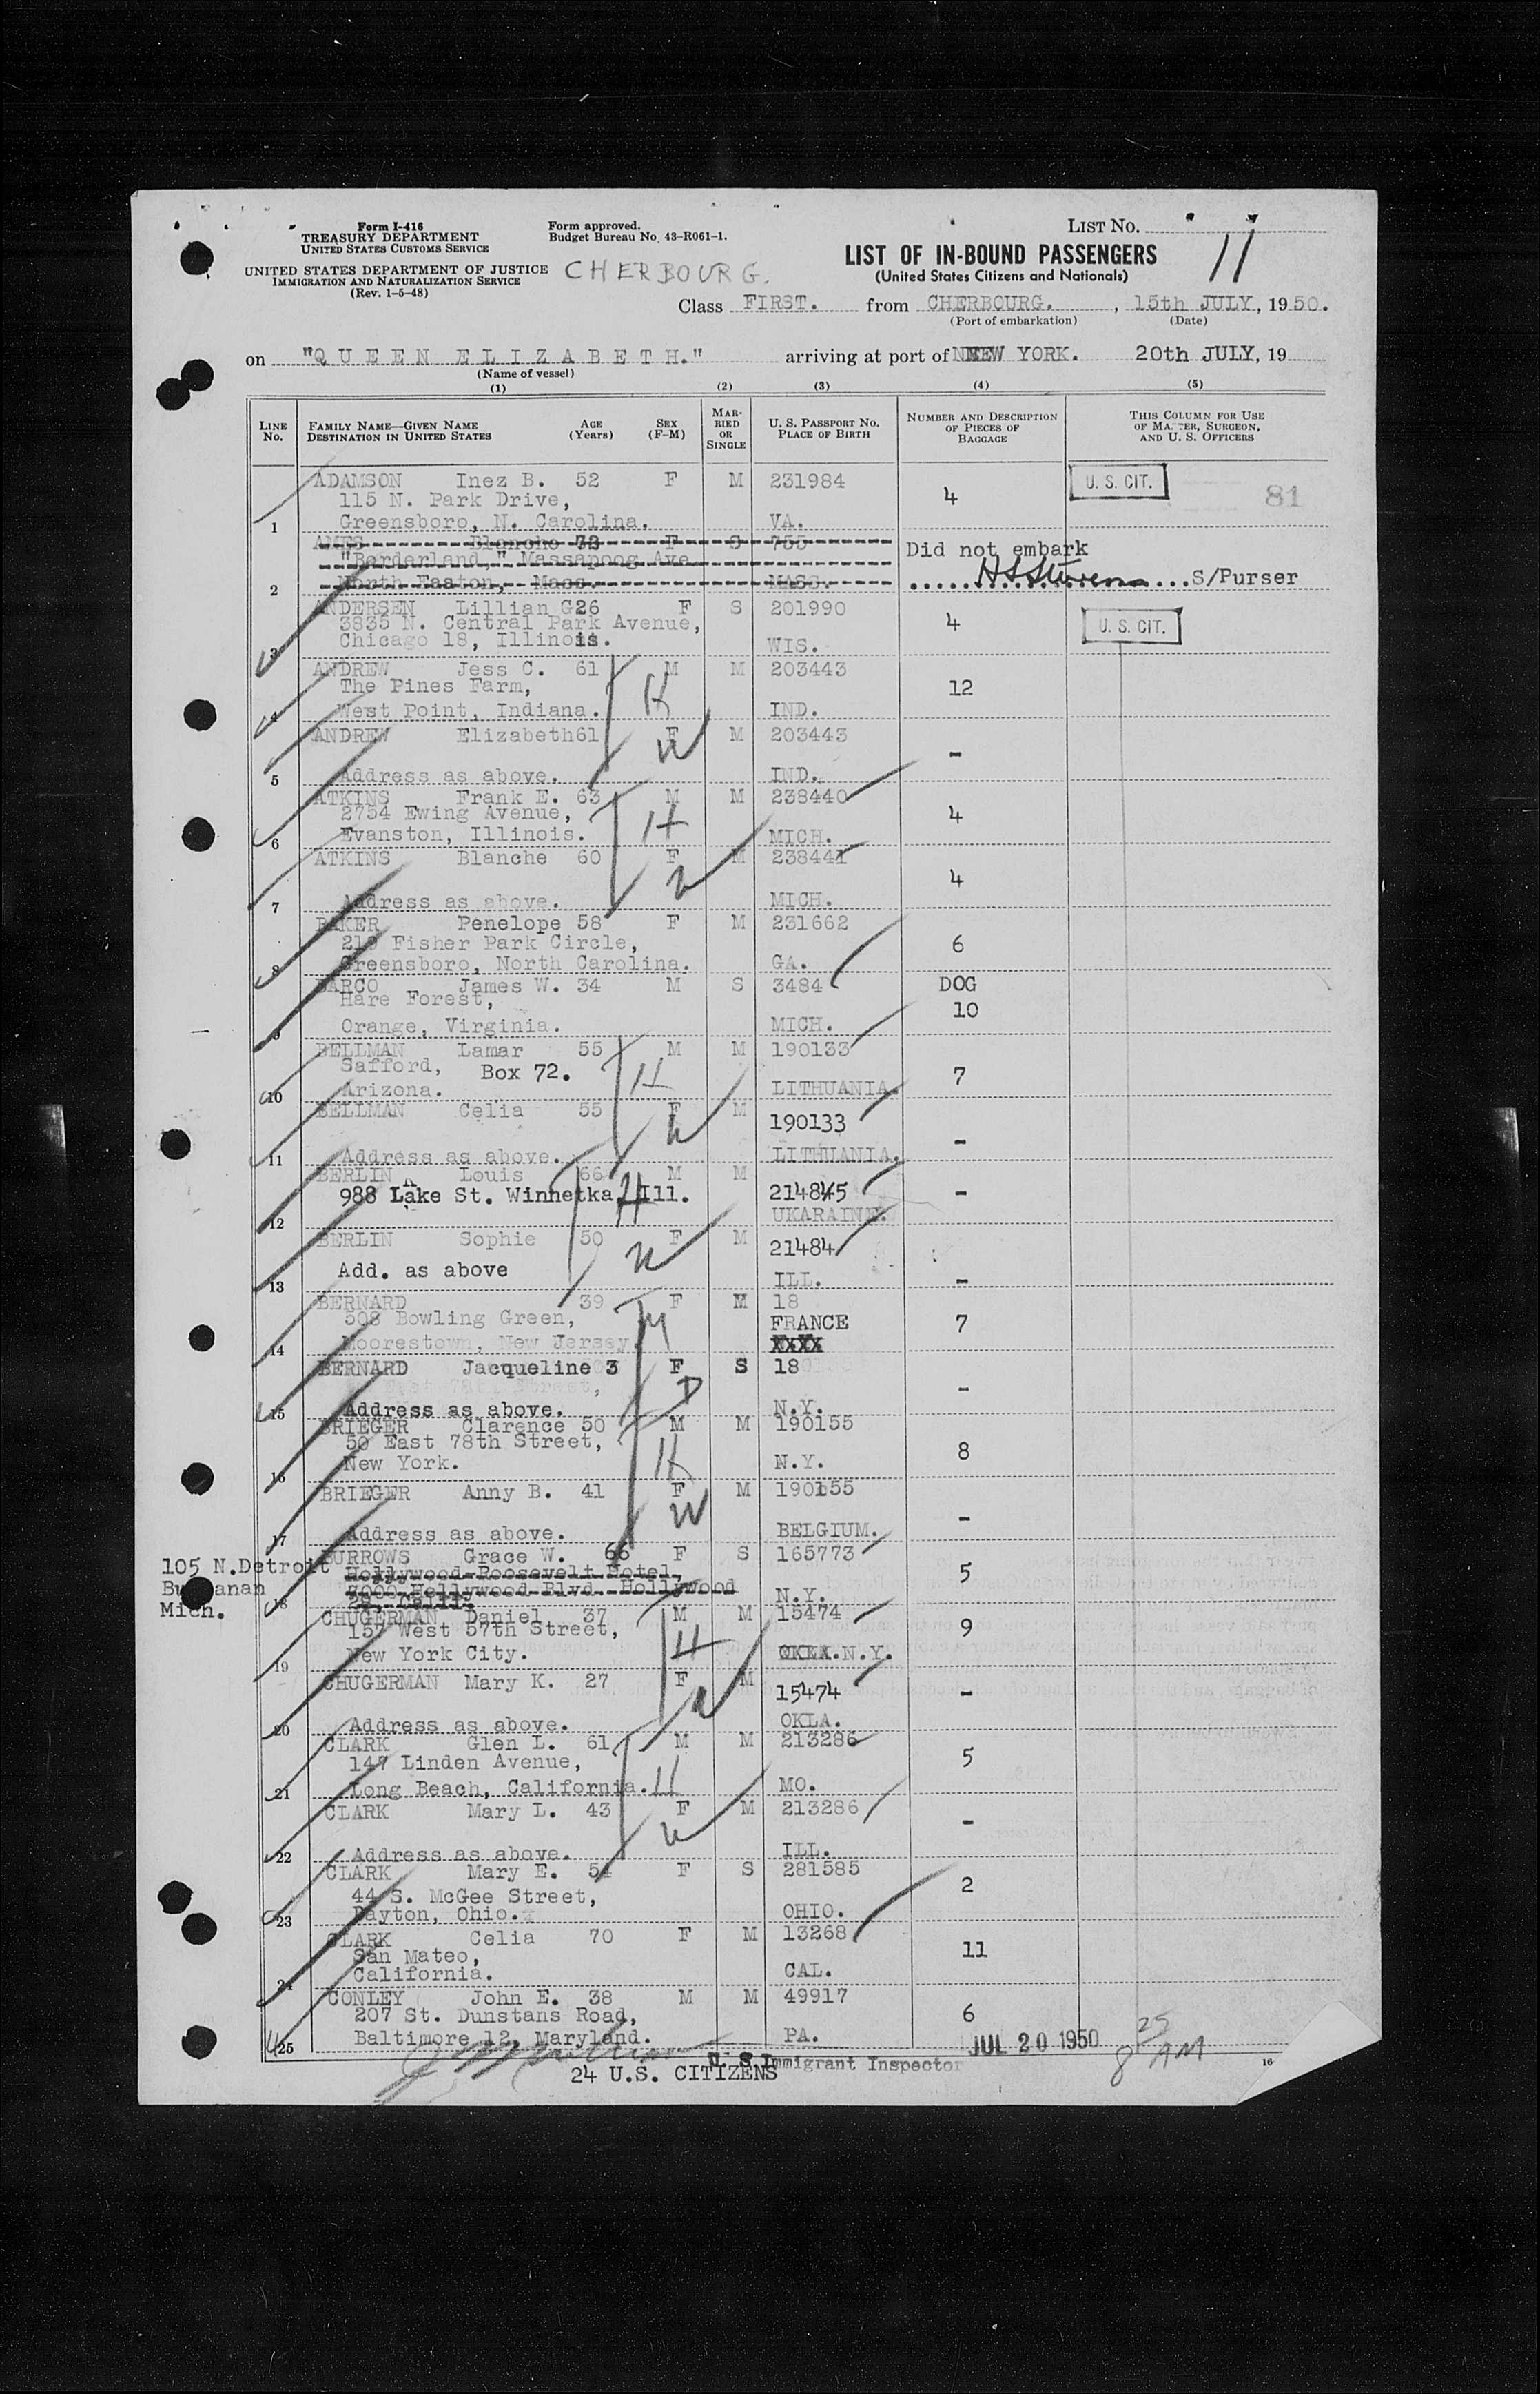 Form I-416
TREASURY DEPARTMENT
UNITED STATES CUSTOMS SERVICE
UNITED STATES DEPARTMENT OF JUSTICE
IMMIGRATION AND NATURALIZATION SERVICE
(Rev. 1-5-48)
Form approved.
Budget Bureau No. 43-R061-1.
CHERBOURG.
LIST No. 11
LIST OF IN-BOUND PASSENGERS
(United States Citizens and Nationals)
Class FIRST. from CHERBOURG. , 15th JULY, 1950.
(Port of embarkation) (Date)
on "QUEEN ELIZABETH." arriving at port of NEW YORK. 20th JULY, 19
(Name of vessel)
(1) (2) (3) (4) (5)
LINE No. FAMILY NAME—GIVEN NAME DESTINATION IN UNITED STATES AGE (Years) SEX (F-M) MARRIED OR SINGLE U. S. PASSPORT No. PLACE OF BIRTH NUMBER AND DESCRIPTION OF PIECES OF BAGGAGE THIS COLUMN FOR USE OF MASTER, SURGEON, AND U. S. OFFICERS
ADAMSON Inez B. 52 F M 231984 4 U. S. CIT. 81
115 N. Park Drive,
1 Greensboro, N. Carolina. VA.
AMES Blanche 72 F S 755 Did not embark
"Borderland," Massapoog Ave
2 North Easton, Mass. MASS. S/Purser
ANDERSEN Lillian G 26 F S 201990 4 U. S. CIT.
3835 N. Central Park Avenue,
3 Chicago 18, Illinois. WIS.
ANDREW Jess C. 61 M M 203443 12
The Pines Farm, H
4 West Point, Indiana. IND.
ANDREW Elizabeth 61 F M 203443 -
W
5 Address as above. IND.
ATKINS Frank E. 63 M M 238440 4
2754 Ewing Avenue, H
6 Evanston, Illinois. MICH.
ATKINS Blanche 60 F M 238441 4
W
7 Address as above. MICH.
BAKER Penelope 58 F M 231662 6
219 Fisher Park Circle,
8 Greensboro, North Carolina. GA.
BARCO James W. 34 M S 3484 DOG
Hare Forest, 10
9 Orange, Virginia. MICH.
BELLMAN Lamar 55 M M 190133 7
Safford, Box 72. H
10 Arizona. LITHUANIA.
BELLMAN Celia 55 F M 190133 -
W
11 Address as above. LITHUANIA.
BERLIN Louis 66 M M 21485 -
988 Lake St. Winnetka, Ill. H
12 UKARAINE.
BERLIN Sophie 50 F M 21484 -
W
13 Add. as above ILL.
BERNARD 39 F M 18 7
508 Bowling Green, M FRANCE
14 Moorestown, New Jersey XXXX
BERNARD Jacqueline 3 F S 18 -
D
15 Address as above. N.Y.
BRIEGER Clarence 50 M M 190155 8
50 East 78th Street, H
16 New York. N.Y.
BRIEGER Anny B. 41 F M 190155 -
W
17 Address as above. BELGIUM.
BURROWS Grace W. 66 F S 165773 5
105 N. Detroit Hollywood-Roosevelt Hotel,
Buchanan 7000 Hollywood Blvd. Hollywood
18 Mich. 28, Calif. N.Y.
CHUGERMAN Daniel 37 M M 15474 9
157 West 57th Street, H
19 New York City. OKLA. N.Y.
CHUGERMAN Mary K. 27 F M 15474 -
W
20 Address as above. OKLA.
CLARK Glen L. 61 M M 213286 5
147 Linden Avenue,
21 Long Beach, California. H MO.
CLARK Mary L. 43 F M 213286 -
W
22 Address as above. ILL.
CLARK Mary E. 54 F S 281585 2
44 S. McGee Street,
23 Dayton, Ohio. OHIO.
CLARK Celia 70 F M 13268 11
San Mateo,
24 California. CAL.
CONLEY John E. 38 M M 49917 6
207 St. Dunstans Road,
25 Baltimore 12, Maryland. PA.
JUL 20 1950 8 25 AM
U. S. Immigrant Inspector 16
24 U.S. CITIZENS